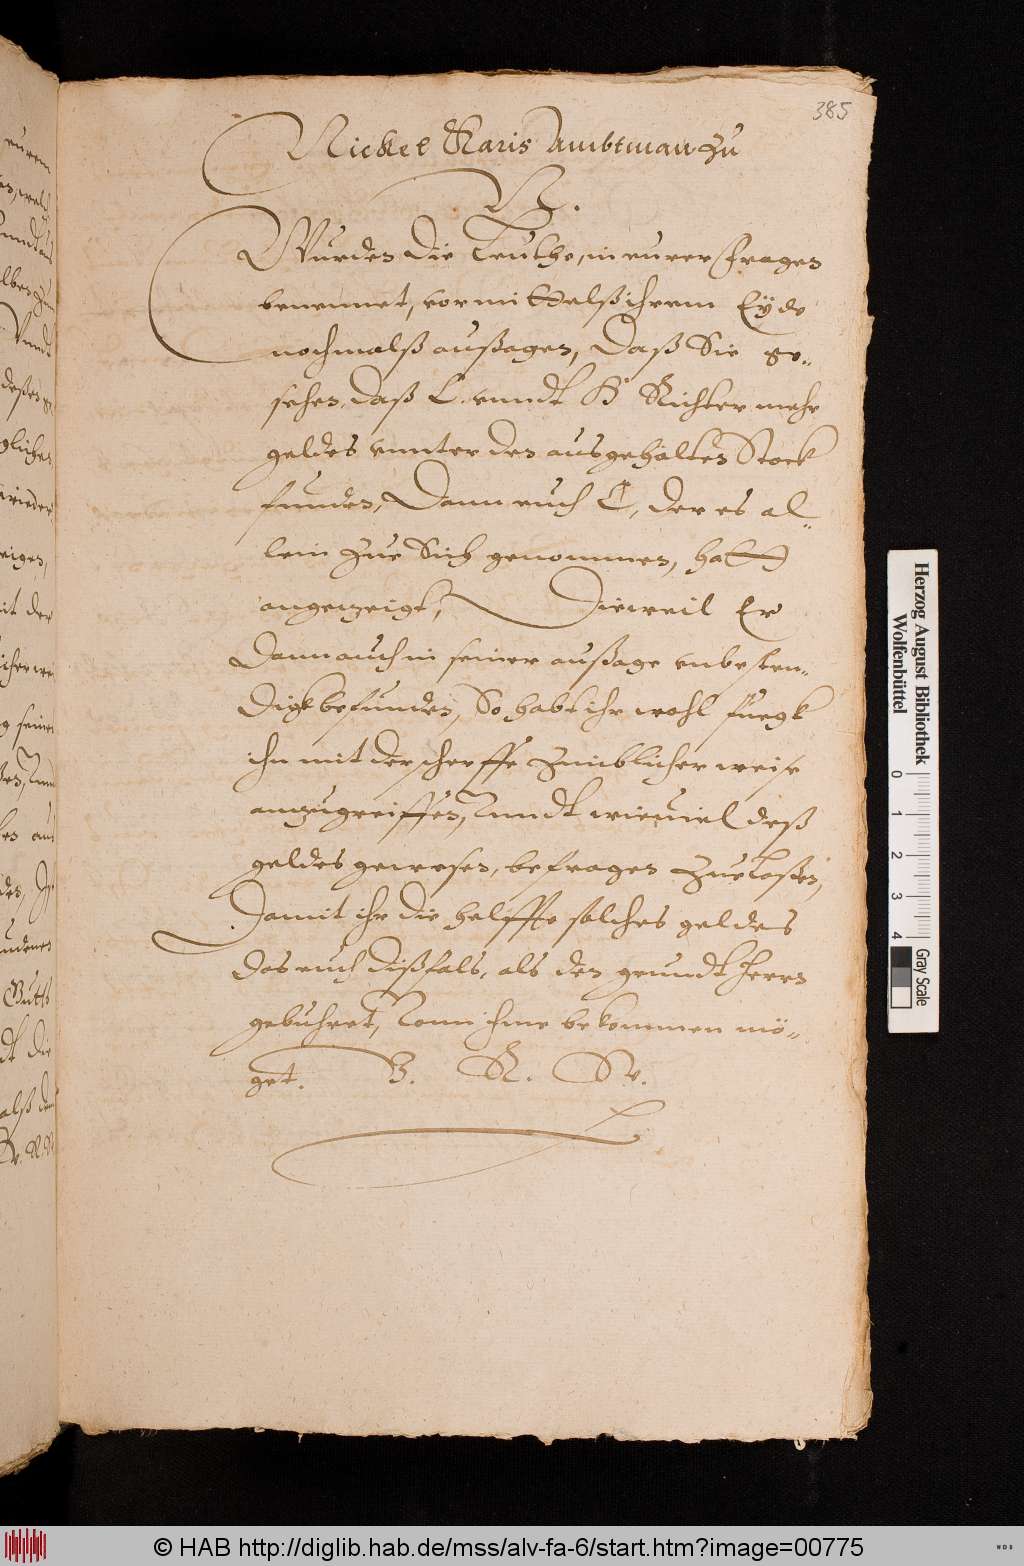 385
Nickel Karis Ambtman zu
N.
Wurden die Leuthe, in eurer Fragen
benennet, vormittelß ihrem Eÿde
nochmalß außagen, Daß Sie ge-
sehen, daß C. vnndt H Richter mehr
geldes vnnter den ausgehölten Stock
funden, Dann euch C, der es al-
lein zue Sich genommen, hatt
angezeigt, Dieweil Er
Dann auch in seiner außage vnbesten-
digk befunden, So habt ihr wohl fuegk
ihn mit der scherffe Zimblicher weise
anzugreiffen, Vnndt wieuiel deß
geldes gewesen, befragen Zue laßen,
Damit ihr die helffte solches geldes
das euch dißfals, als den grundt herrn
gebuhret, Vonn ihme bekommen mö-
get. V. R. W.
Herzog August Bibliothek
Wolfenbüttel
0 1 2 3 4
Gray Scale
© HAB http://diglib.hab.de/mss/alv-fa-6/start.htm?image=00775